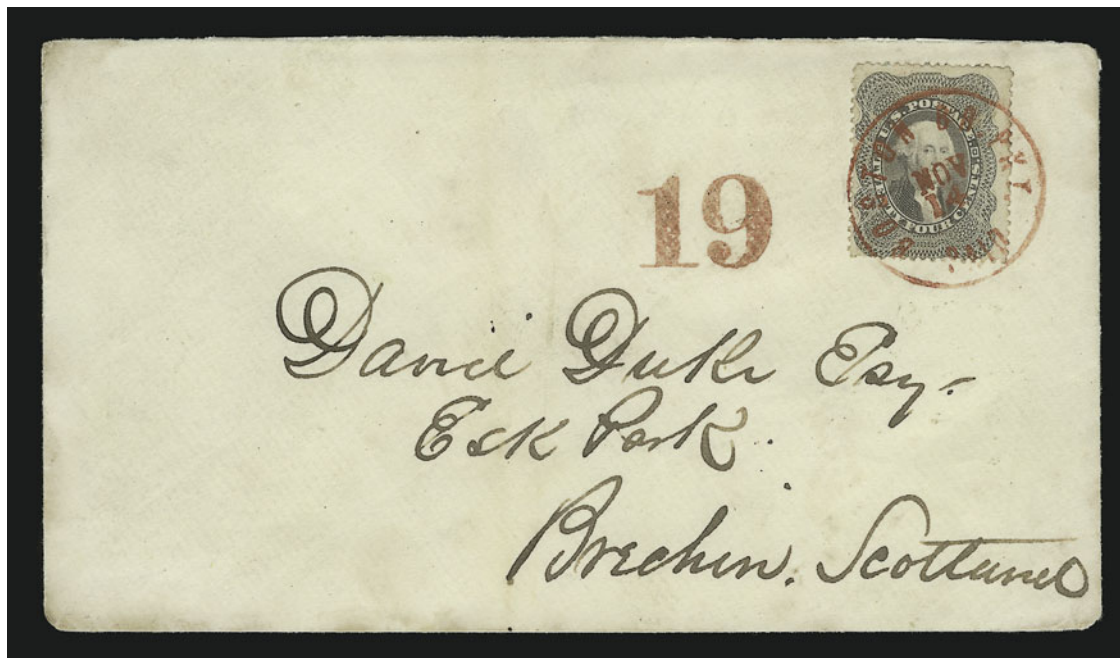 U.S. POSTAGE.
TWENTY FOUR CENTS.
BOSTON BR. PKT.
NOV
PAID
19
David Duke Esq-
Esk Park.
Brechin. Scotland